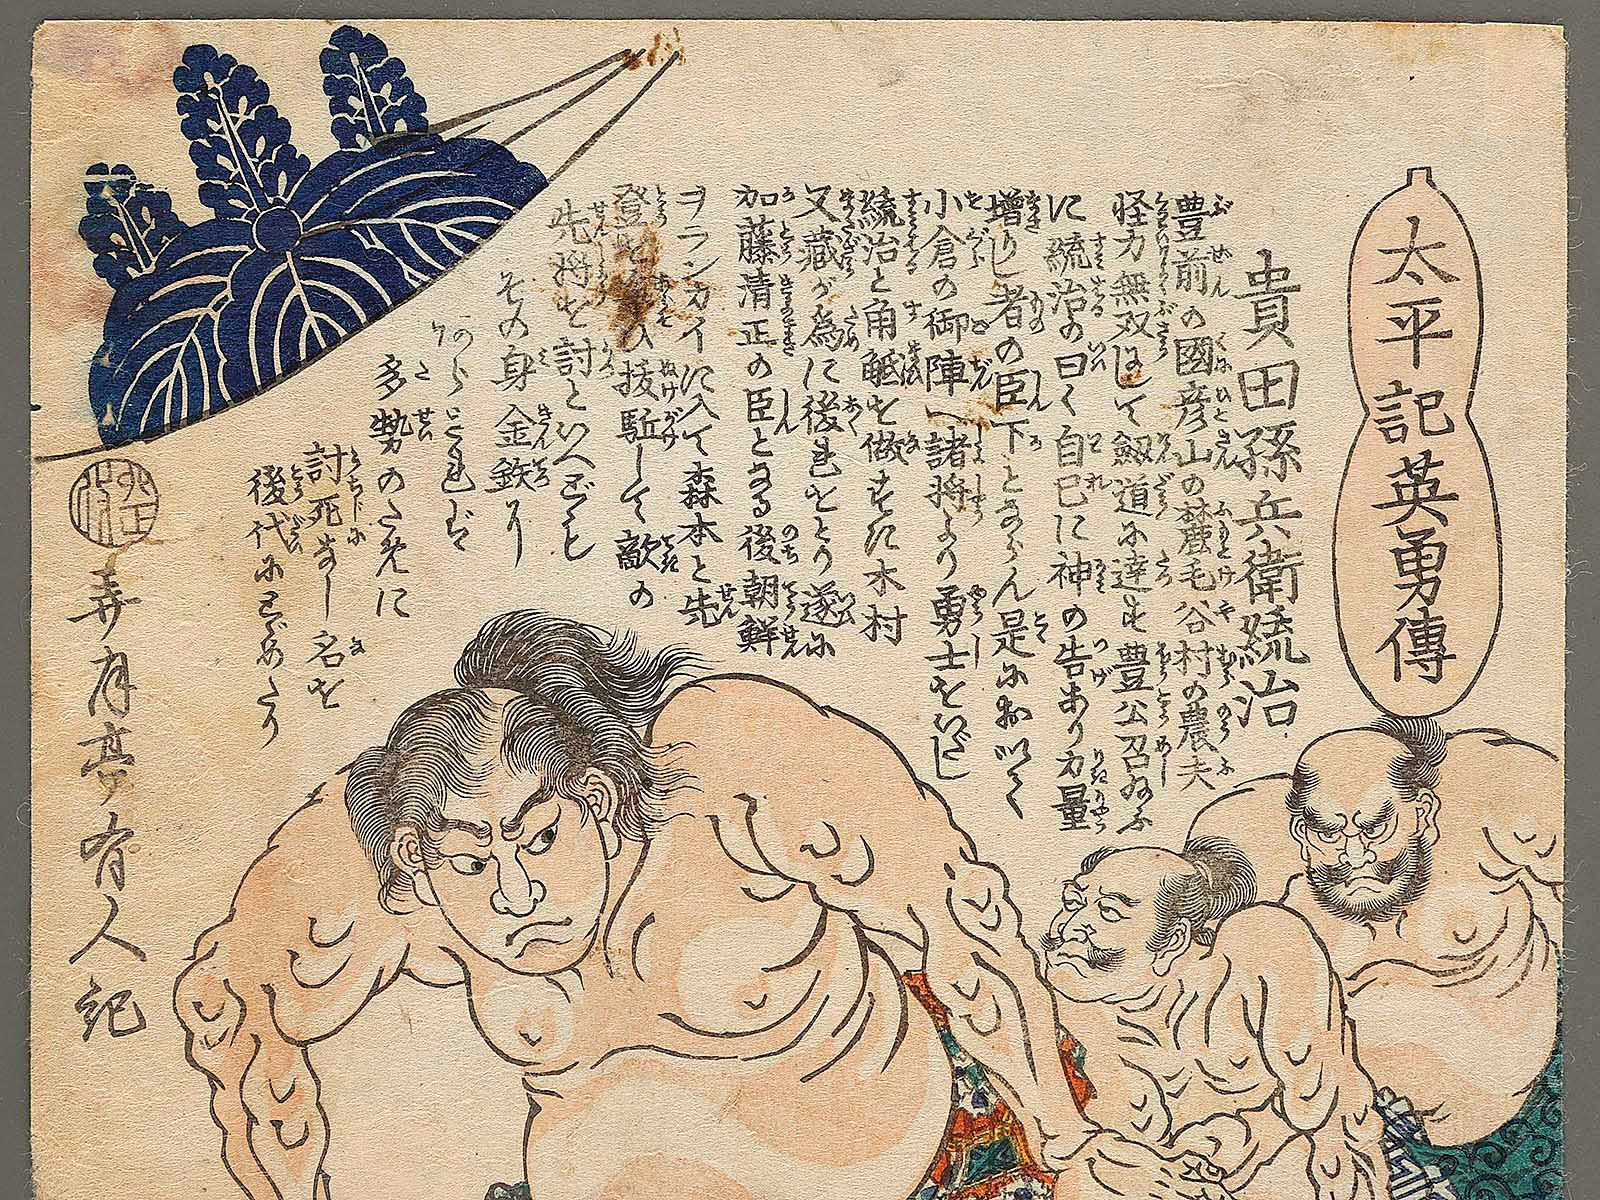 太平記英勇傳
貴田孫兵衛統治
豊前の國彦山の麓毛谷村の農夫
怪力無双にして劔道に達す豊公召給ふ
に統治の曰く自己に神の告あり力量
増りし者の臣下とならん是に於いて
小倉の御陣へ諸將より勇士をいだし
統治と角觝を做すに木村
又蔵が為に後れをとり遂に
加藤清正の臣となる後朝鮮
ヲランカイに入て森本と先
登を
抜駈して敵の
先將を討といへども
その身金鉄に
あらざれば
多勢のために
討死なし名を
後代に
弄月亭有人記